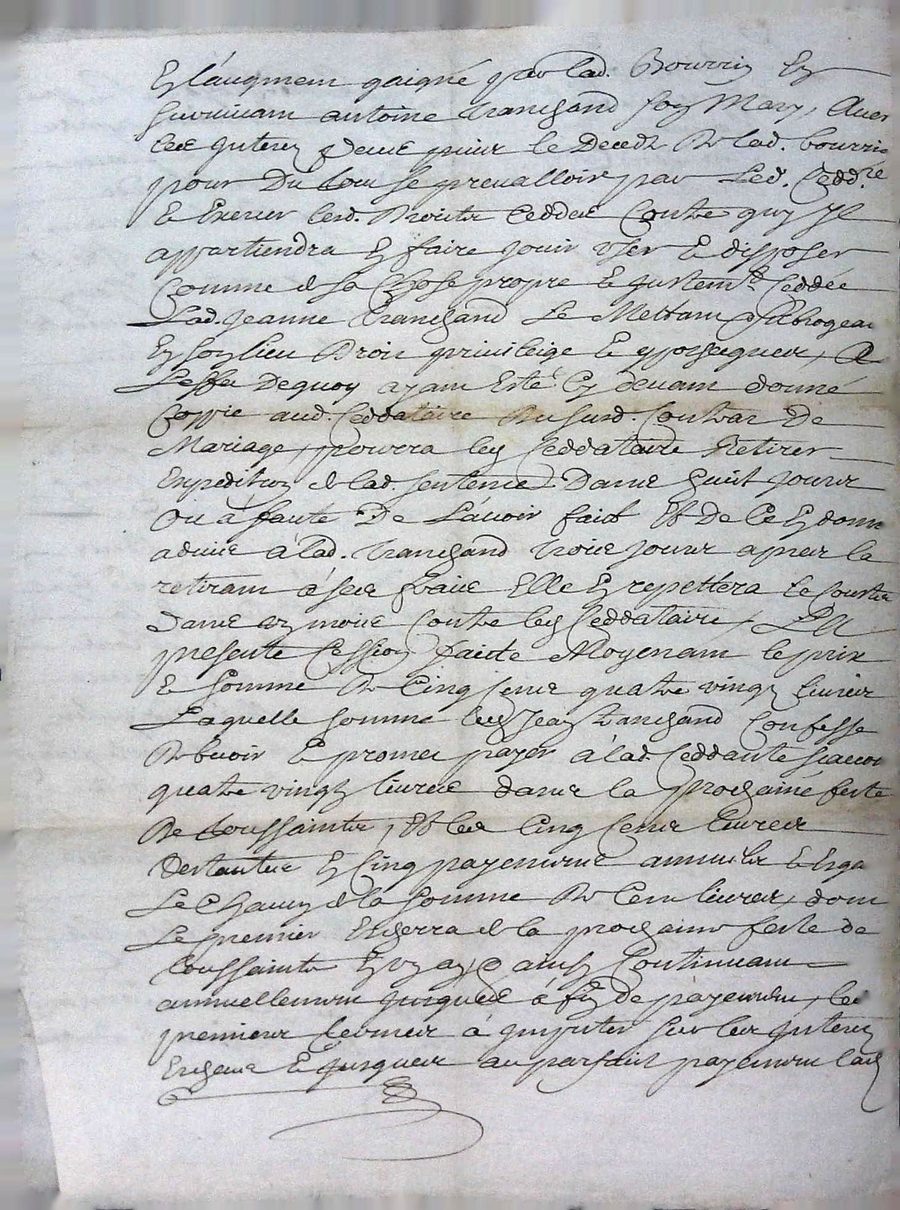 Et laugment gaigné par lad. Bourrin En
survivant antoine tranchand son Mary, Avec
les interetz deue puis le Deced de lad. bourrin
pour Du tout se prevalloir par Led. Cedd.re
Et Exercer lesd. Droitz Ceddee Contre quy Il
appartiendra En faire jouir user Et disposer
Comme de sa Chose propre Et justem.t Ceddée
Lad. Jeanne tranchand Le Mettant Subrogeant
En son lieu Droit privileige Et ypotecque,
Leffect Dequoy ayant Esté Cy devant donné
Coppie aud. Ceddataire Du susd. Contrat De
Mariage, pourra led. Ceddataire Retirer
Expedition de lad. sentence Dans huit jours
Ou à faute De Lavoir fait Et De Ce En donner
advis à lad. tranchand trois jours apres la
retirant à ses fraie Elle En repettera le
Dans un mois Contre led. Ceddataire, La
presente Cession faicte Moyenant le prix
Et somme de Cinq Cens quatre vingtz livres
Laquelle somme led. Jean tranchand Confesse
Debvoir Et promet payer à lad. Ceddante scavoir
quatre vingtz livres dans la prochaine feste
De toussaintz, Et les Cinq Cens livres
restantes En Cinq payements annuels Et Esgaux
Le Chacun de la somme de Cent livres, dont
Le premier Escherra de la prochaine feste de
toussaintz En un an, Et ainsy Continuant
annuellement jusques à fin de payement, les
premiers termes à imputer sur les interetz
Escheus Et jusques au parfait payement lad.